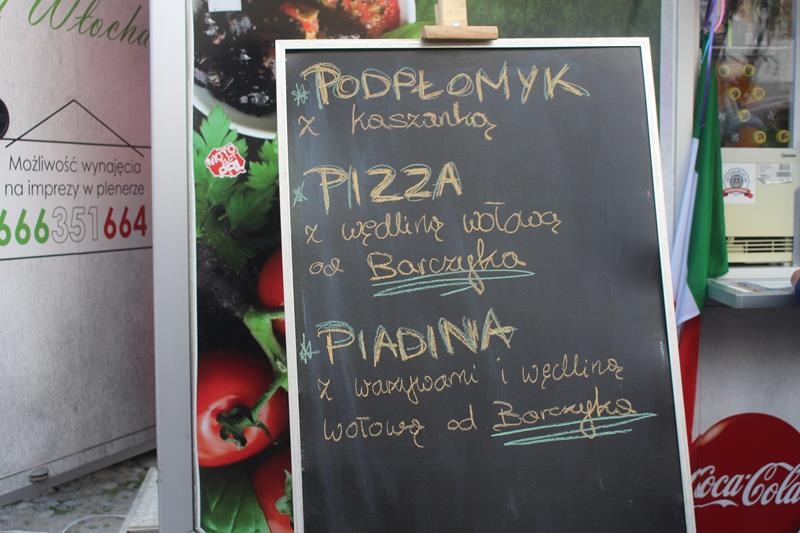 Włocha
Możliwość wynajęcia
na imprezy w plenerze
666351664
MOTO
* PODPŁOMYK
z kaszanką
* PIZZA
z wędliną wołową
od Barczyka
* PIADINA
z warzywami i wędliną
wołową od Barczyka
Coca-Cola